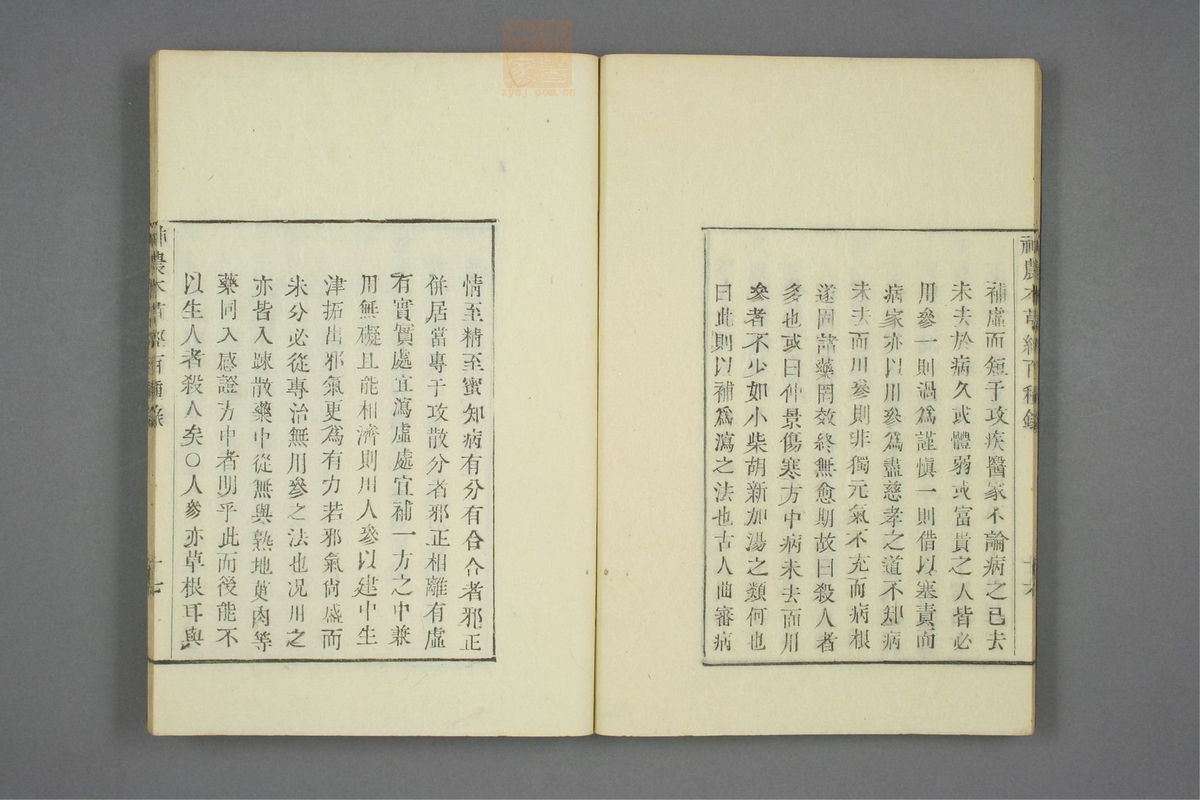 神農本草經百種錄
十六
補虛而短于攻疾醫家不論病之已去
未去於病久或體弱或富貴之人皆必
用參一則過爲謹慎一則借以塞責而
病家亦以用參爲盡慈孝之道不知病
未去而用參則非獨元氣不充而病根
遂固諸藥罔效終無愈期故曰殺人者
多也或曰仲景傷寒方中病未去而用
參者不少如小柴胡新加湯之類何也
曰此則以補爲瀉之法也古人曲審病
情至精至蜜知病有分有合合者邪正
併居當專于攻散分者邪正相離有虛
有實實處宜瀉虛處宜補一方之中兼
用無礙且能相濟則用人參以建中生
津拓出邪氣更爲有力若邪氣尙盛而
未分必從專治無用參之法也况用之
亦皆入疎散藥中從無與熟地萸肉等
藥同入感證方中者明乎此而後能不
以生人者殺人矣○人參亦草根耳與
神農本草經百種錄
十七
zysj.com.cn